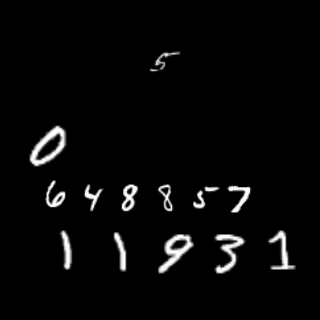 5
0
648857
11931